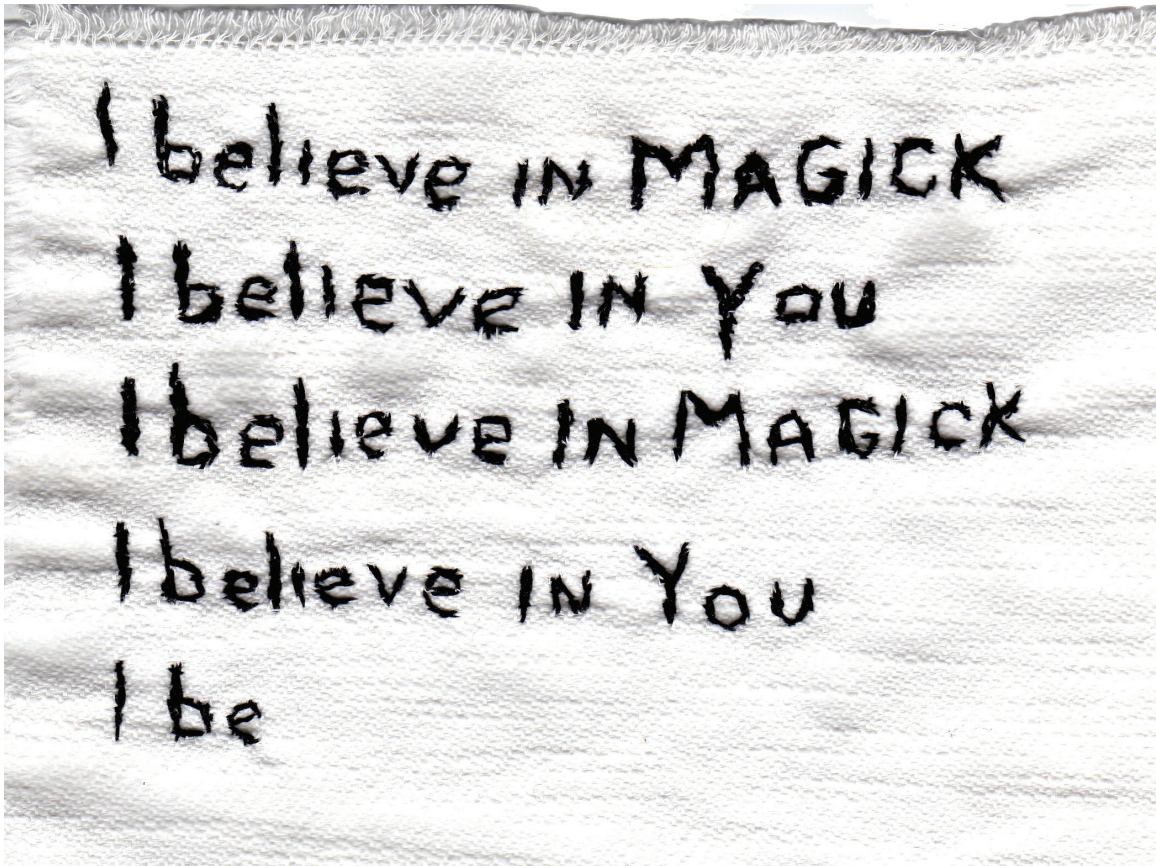 I believe IN MAGICK
I believe IN You
I believe IN MAGICK
I believe IN You
I be